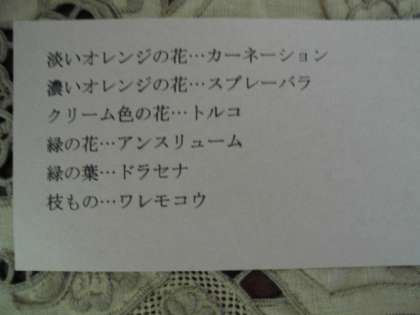 淡いオレンジの花…カーネーション
濃いオレンジの花…スプレーバラ
クリーム色の花…トルコ
緑の花…アンスリューム
緑の葉…ドラセナ
枝もの…ワレモコウ